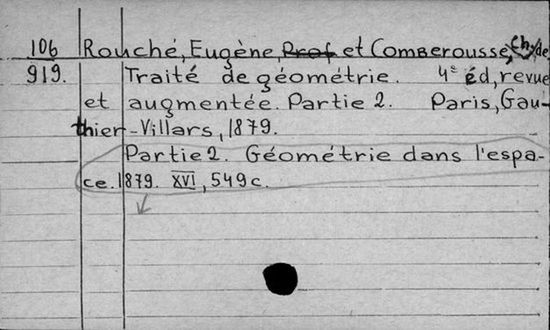 106 Rouché, Eugène, Prof et Comberousse, Ch. de
919. Traité de géométrie. 4ᵉ éd, revue
et augmentée. Partie 2. Paris, Gau-
thier-Villars, 1879.
Partie 2. Géométrie dans l'espa-
ce. 1879. XVI, 549 c.